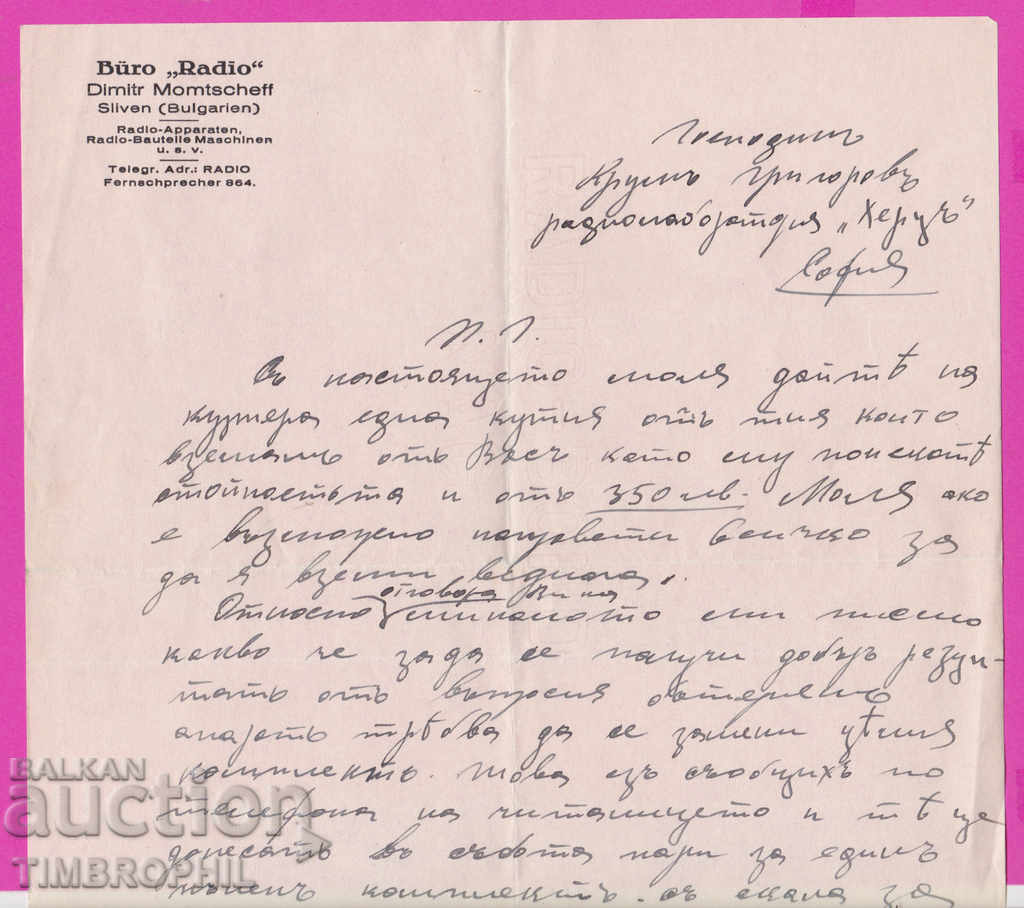 Büro „Radio“
Dimitr Momtscheff
Sliven (Bulgarien)
Radio-Apparaten,
Radio-Bauteile Maschinen
u. s. v.
Telegr. Adr.: RADIO
Fernschprecher 864.
Господинъ
Крумъ Григоровъ
радиолаборатория „Херцъ“
София
П. Г.
Съ настоящето моля дайтѣ на
куриера една кутия отъ тия които
вземамъ отъ Васъ като му поискатѣ
стойностьта и отъ 350 лв. Моля ако
е възможно направете всичко за
да я вземи веднага.
отговора Ви на
Относно миналото ми писмо
какво че за да се получи добър резул-
татъ отъ въпросния батериенъ
апаратъ трѣбва да се замени цѣлия
комплектъ. Това азъ съобщихъ по
телефона на читалището и тѣ ще
донесатъ въ събота пари за единъ
пъленъ комплектъ съ скала за
BALKAN
auction
TIMBROPHIL